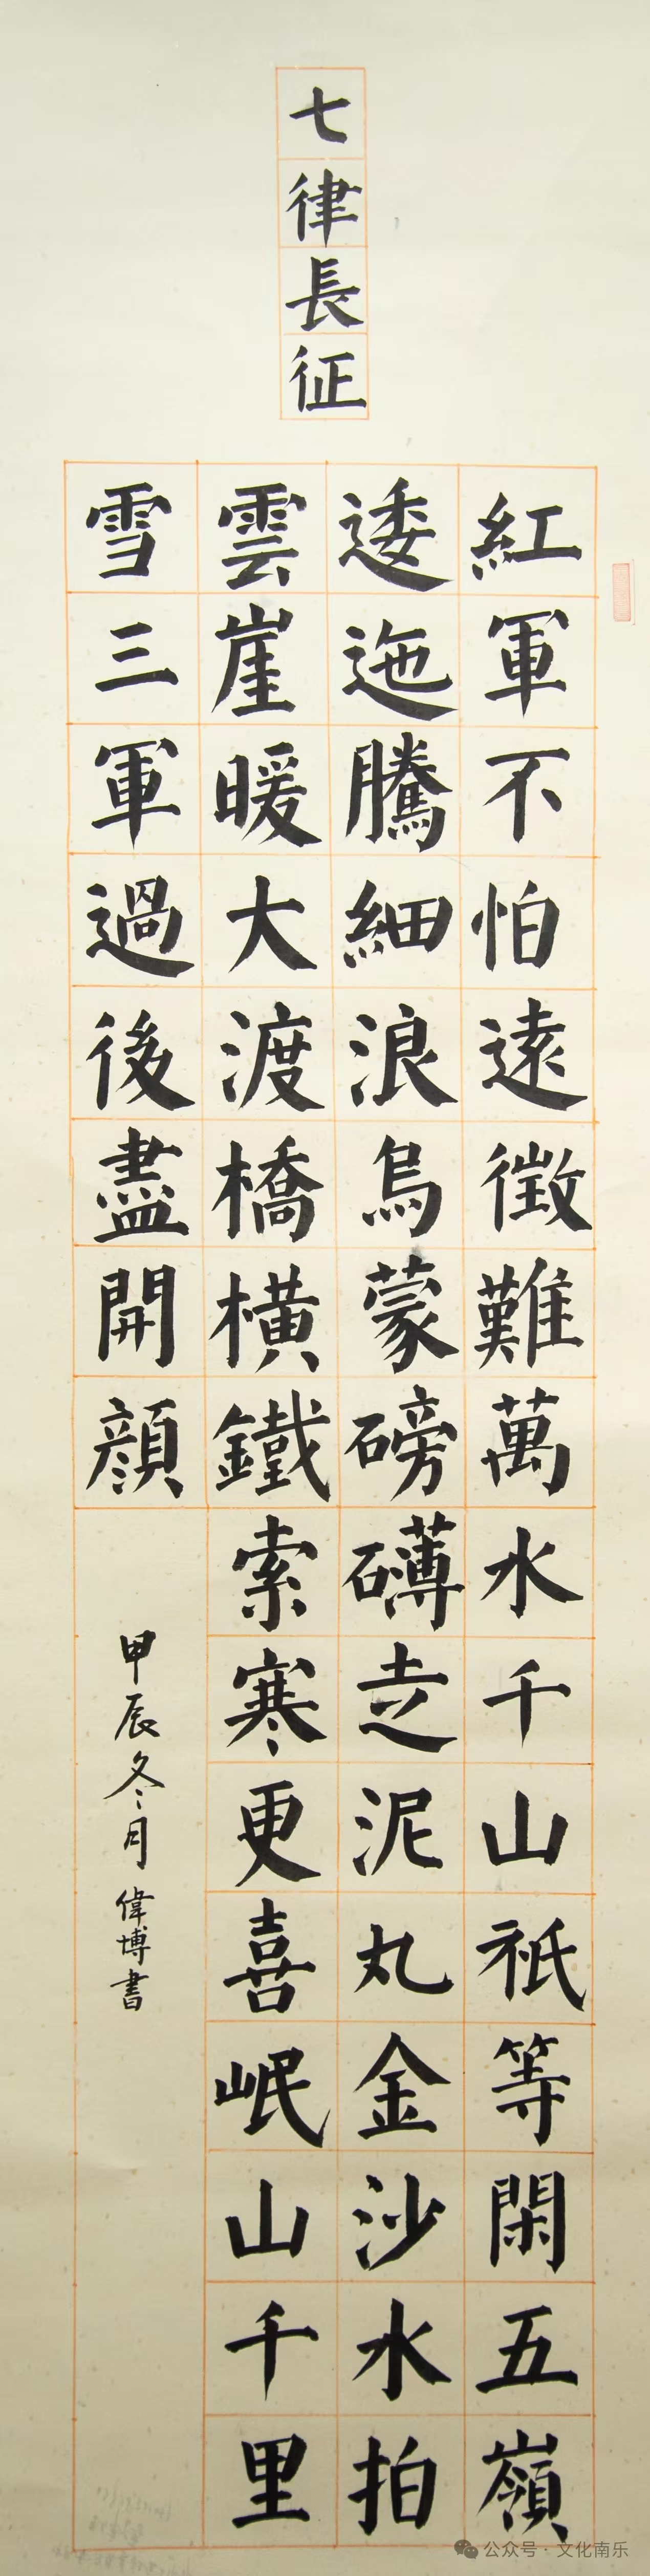 七律長征
紅軍不怕遠徵難萬水千山祇等閑五嶺
逶迤騰細浪烏蒙磅礴走泥丸金沙水拍
雲崖暖大渡橋横鐵索寒更喜岷山千里
雪三軍過後盡開顔
甲辰冬月 偉博書
公众号·文化南乐